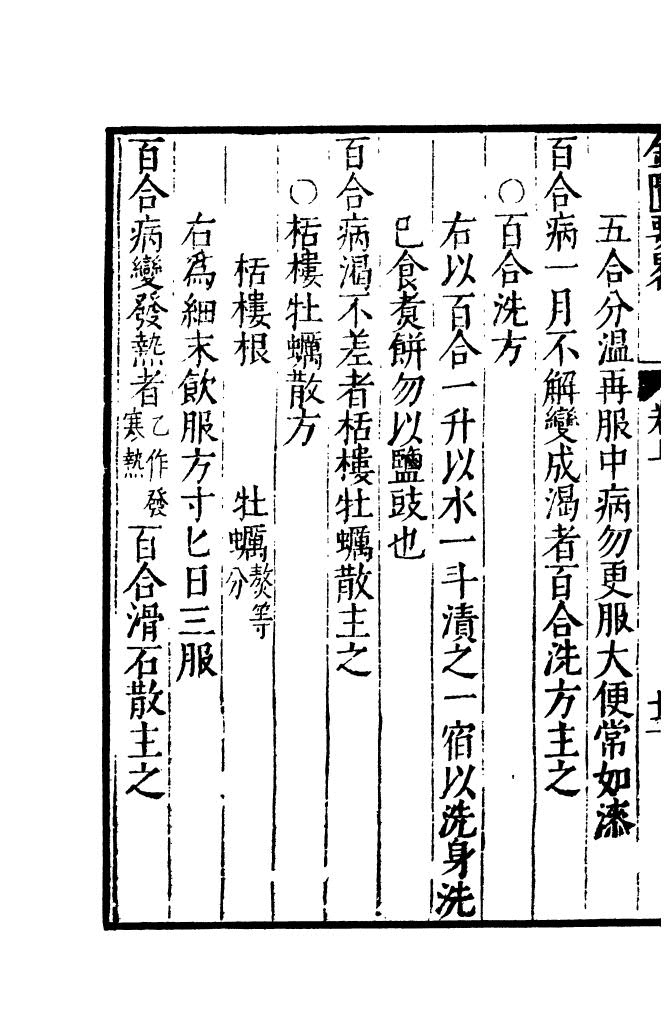 五合分温再服中病勿更服大便常如漆
百合病一月不解變成渴者百合洗方主之
○百合洗方
右以百合一升以水一斗漬之一宿以洗身洗
已食煑餅勿以鹽豉也
百合病渴不差者栝樓牡蠣散主之
○栝樓牡蠣散方
栝樓根　牡蠣熬等分
右爲細末飲服方寸匕日三服
百合病變發熱者乙作發寒熱百合滑石散主之